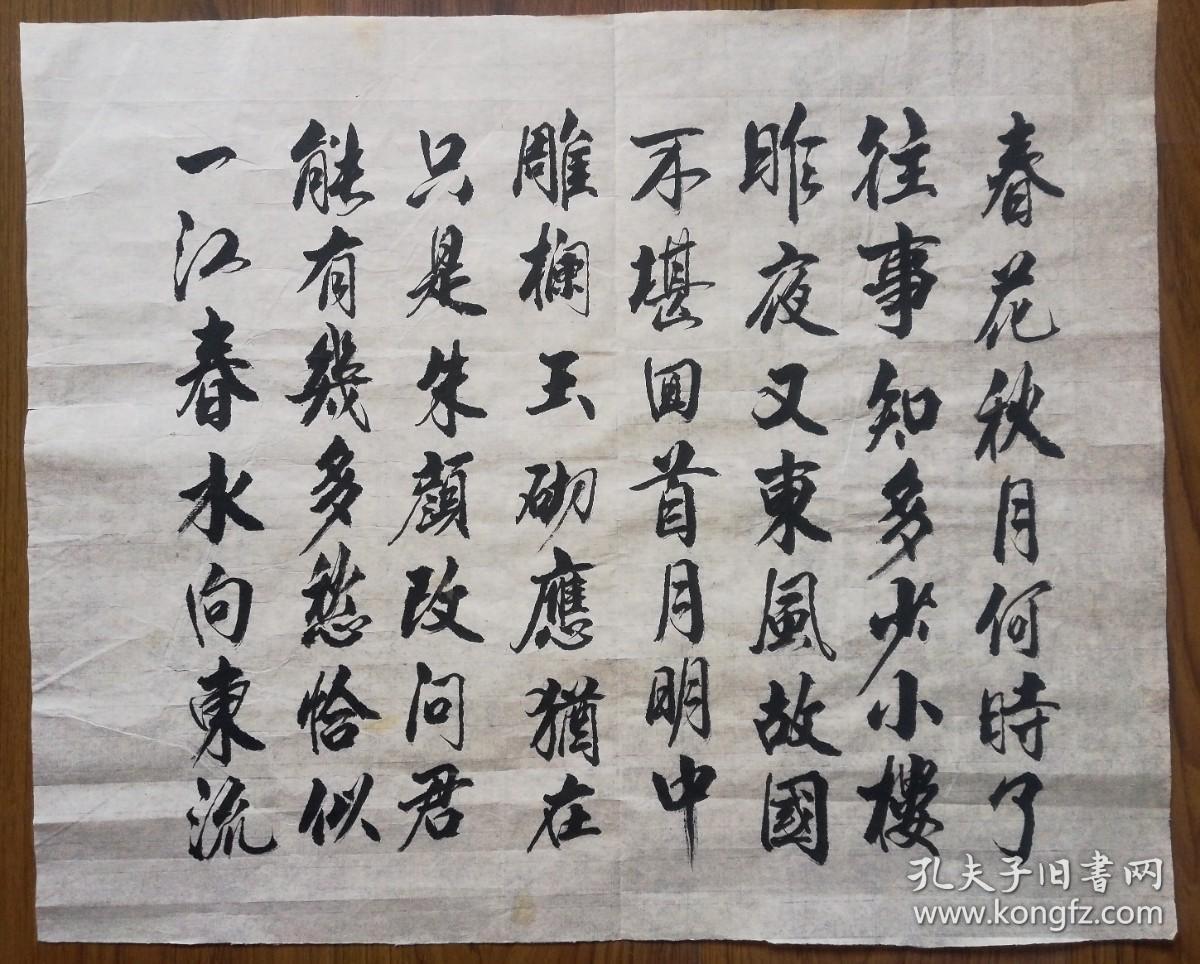 春花秋月何時了
往事知多少小樓
昨夜又東風故國
不堪回首月明中
雕欄玉砌應猶在
只是朱顏改问君
能有幾多愁恰似
一江春水向東流
孔夫子旧书网
www.kongfz.com